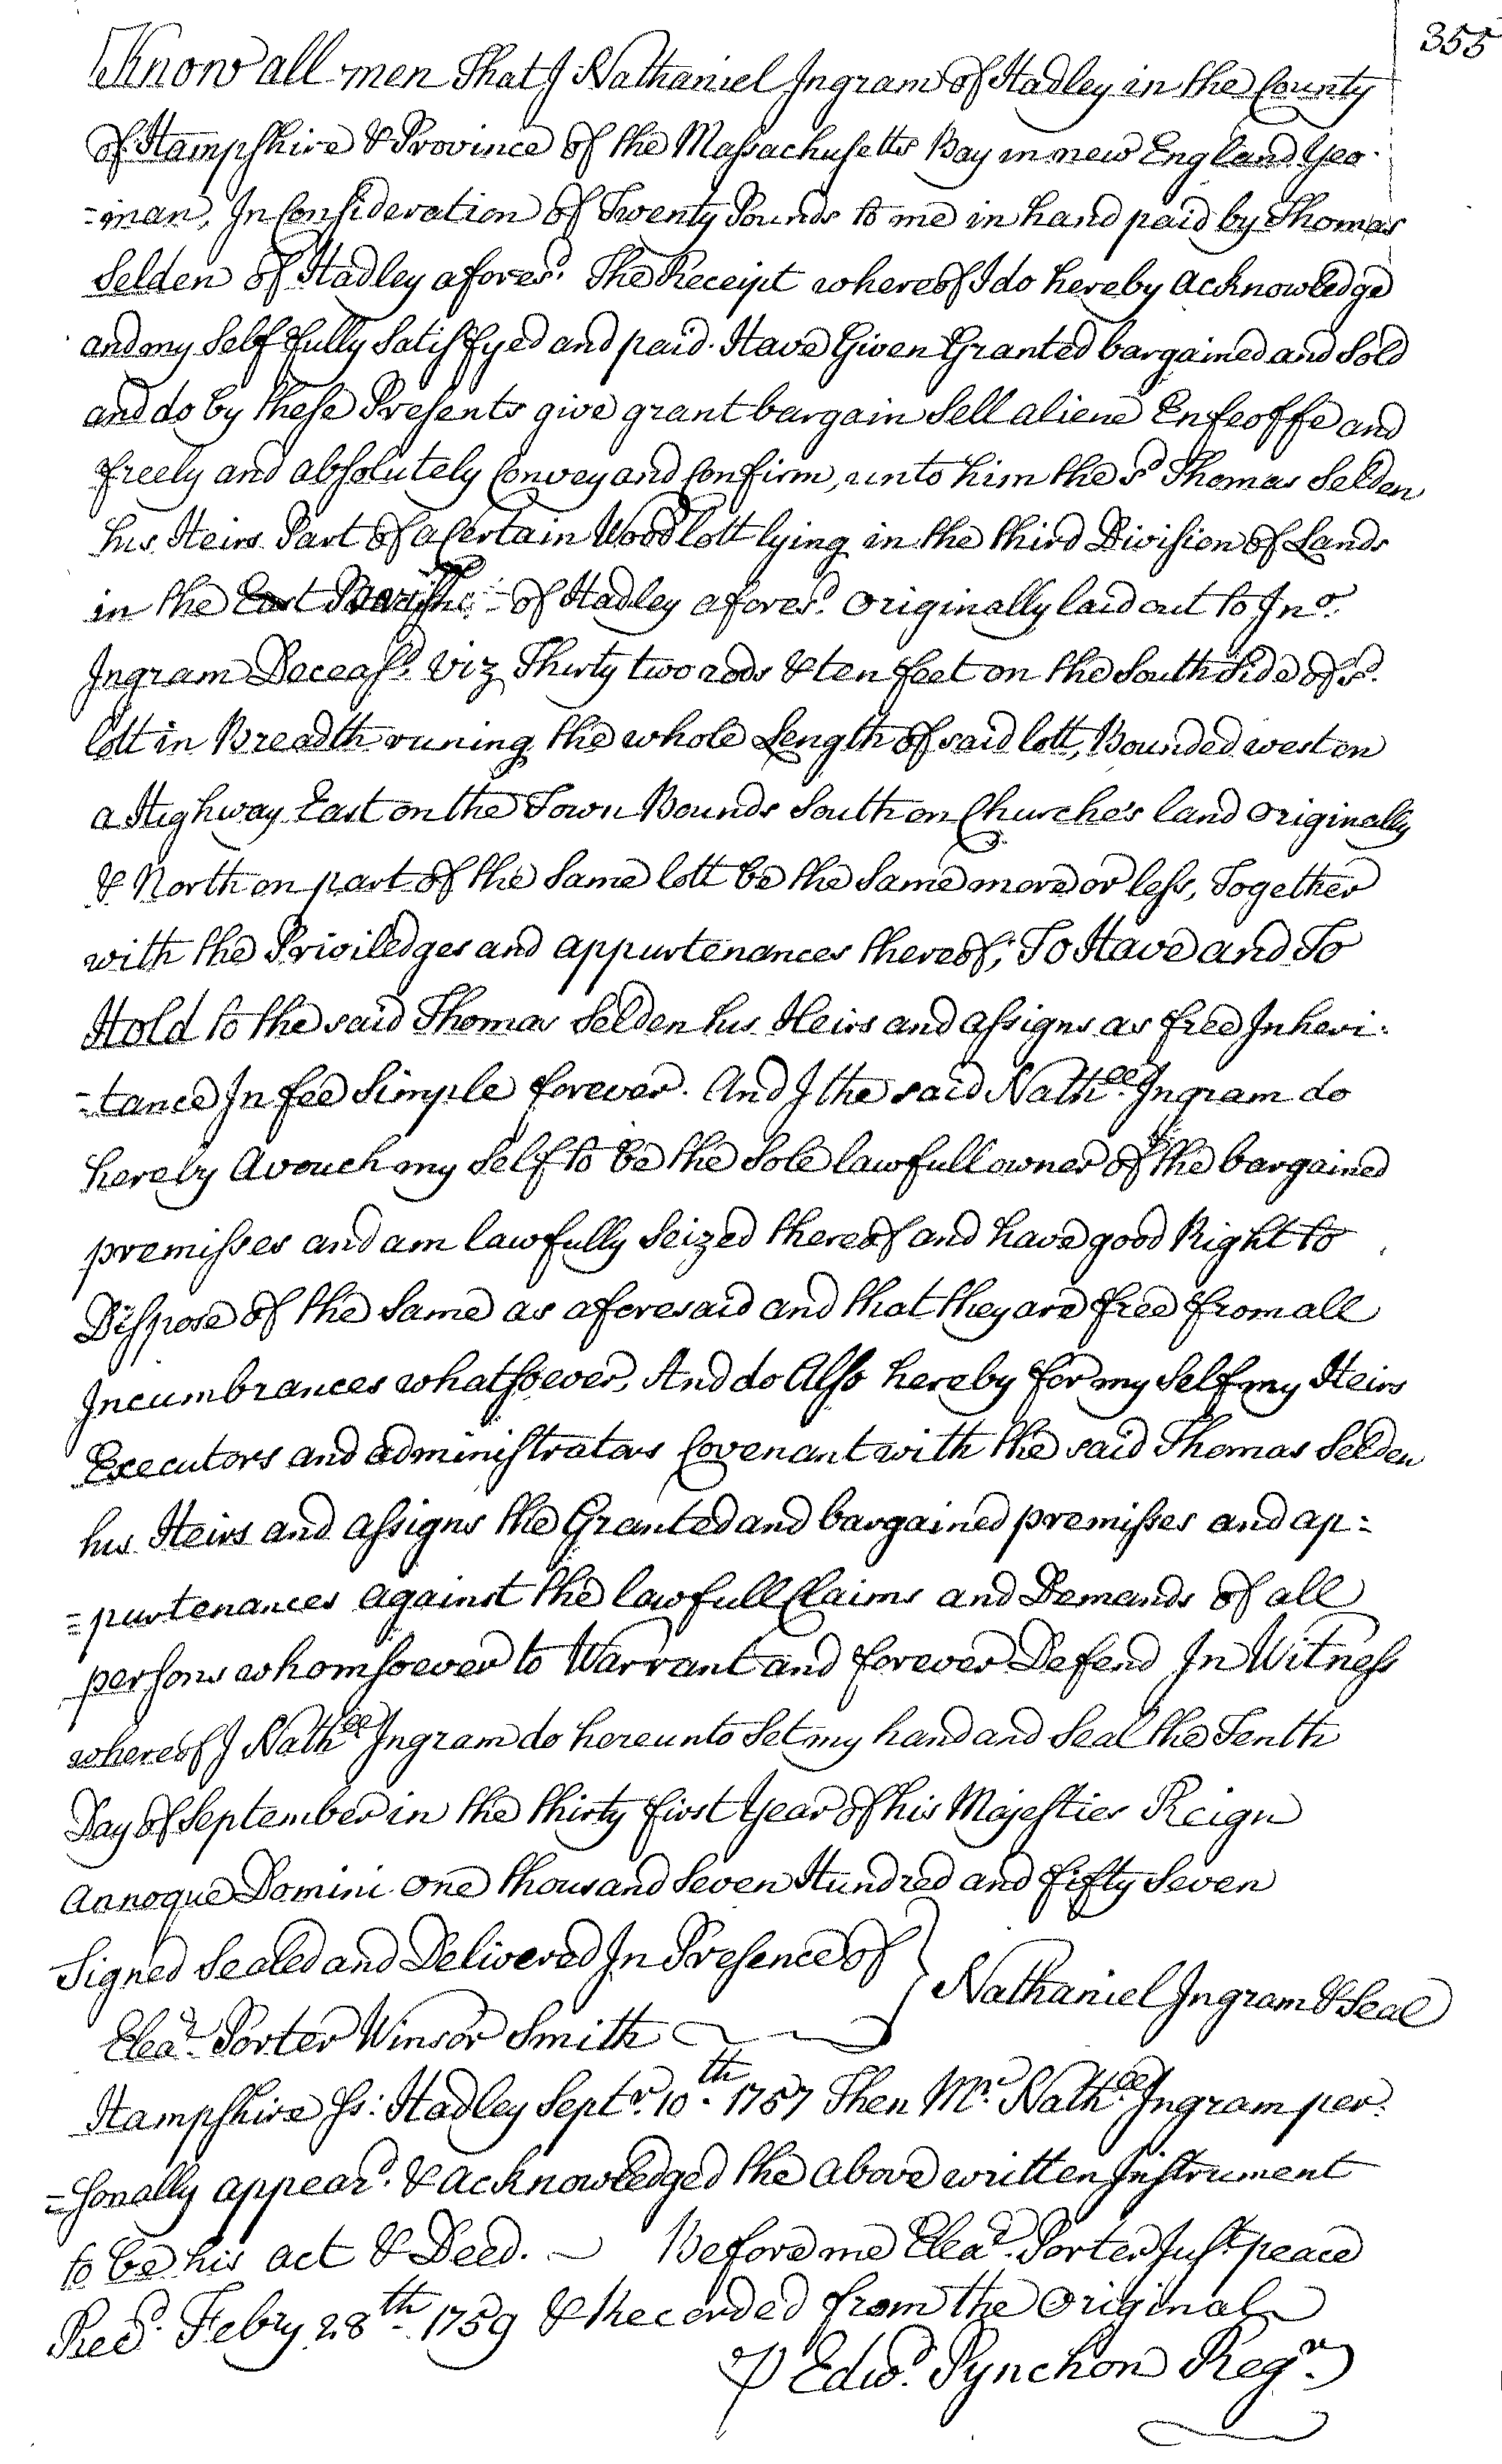 355
Know all men That I Nathaniel Ingram of Hadley in the County
of Hampshire & Province of the Massachusetts Bay in new England Yeo-
=man, In Consideration of Twenty Pounds to me in hand paid by Thomas
Selden of Hadley afores.d The Receipt whereof I do hereby acknowledge
and my self fully satisfyed and paid. Have Given Granted bargained and sold
and do by these Presents give grant bargain sell aliene Enfeoffe and
freely and absolutely Convey and Confirm, unto him the s.d Thomas Selden
his Heirs Part of a Certain Wood lott lying in the third Division of Lands
in the of Hadley afores.d originally laid out to Jn.o
Ingram Deceas.d Viz Thirty two rods & ten feet on the South Side of s.d
lott in Breadth runing the whole Length of said lott, Bounded west on
a Highway East on the Town Bounds South on Churche's land originally
& North on part of the same lott be the same more or less, Together
with the Priviledges and appurtenances thereof; To Have and To
Hold to the said Thomas Selden his Heirs and assigns as free Inheri-
=tance In fee Simple forever. And I the said Nath.ll Ingram do
hereby Avouch my self to be the sole lawfull owner of the bargained
premisses and am lawfully seized thereof and have good Right to
Dispose of the same as aforesaid and that they are free from all
Incumbrances whatsoever, And do Also hereby for my self my Heirs
Executors and administrators Covenant with the said Thomas Selden
his Heirs and assigns the Granted and bargained premisses and ap=
=purtenances against the lawfull Claims and Demands of all
persons whomsoever to Warrant and forever Defend In Witness
whereof I Nath.ll Ingram do hereunto set my hand and seal the Tenth
Day of September in the thirty first Year of his Majesties Reign
Annoque Domini one thousand seven Hundred and fifty seven
Signed Sealed and Delivered In Presence of } Nathaniel Ingram & Seal
Elea.r Porter Winsor Smith
Hampshire ss: Hadley Sept.r 10.th 1757 Then M.r Nath.ll Ingram per-
=sonally appear.d & acknowledged the above written Instrument
to be his act & Deed. — Before me Elea.r Porter Just peace
Rec.d Febry 28.th 1759 & Recorded from the original
⅌ Edw.d Pynchon Reg.r